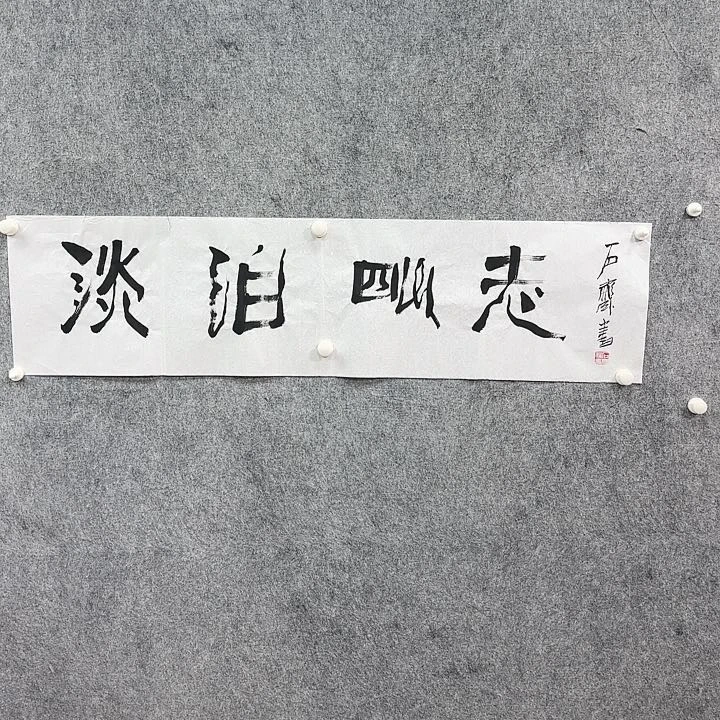 淡泊明志
石齋書